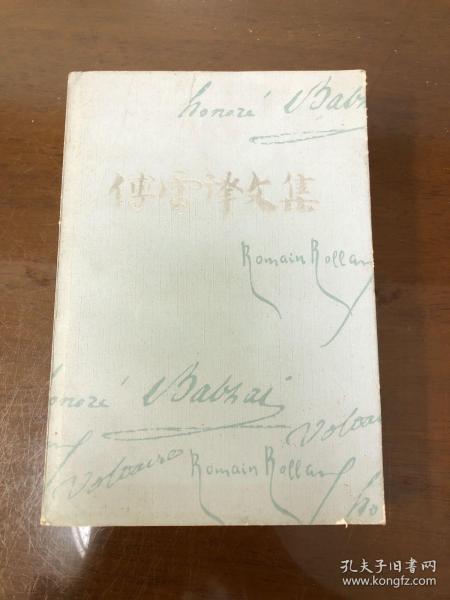 honoré Balz
傅雷译文集
Romain Rollan
honoré Balzac
Voltaire
Voltair
Romain Rolland
ho
孔夫子旧书网
www.kongfz.com